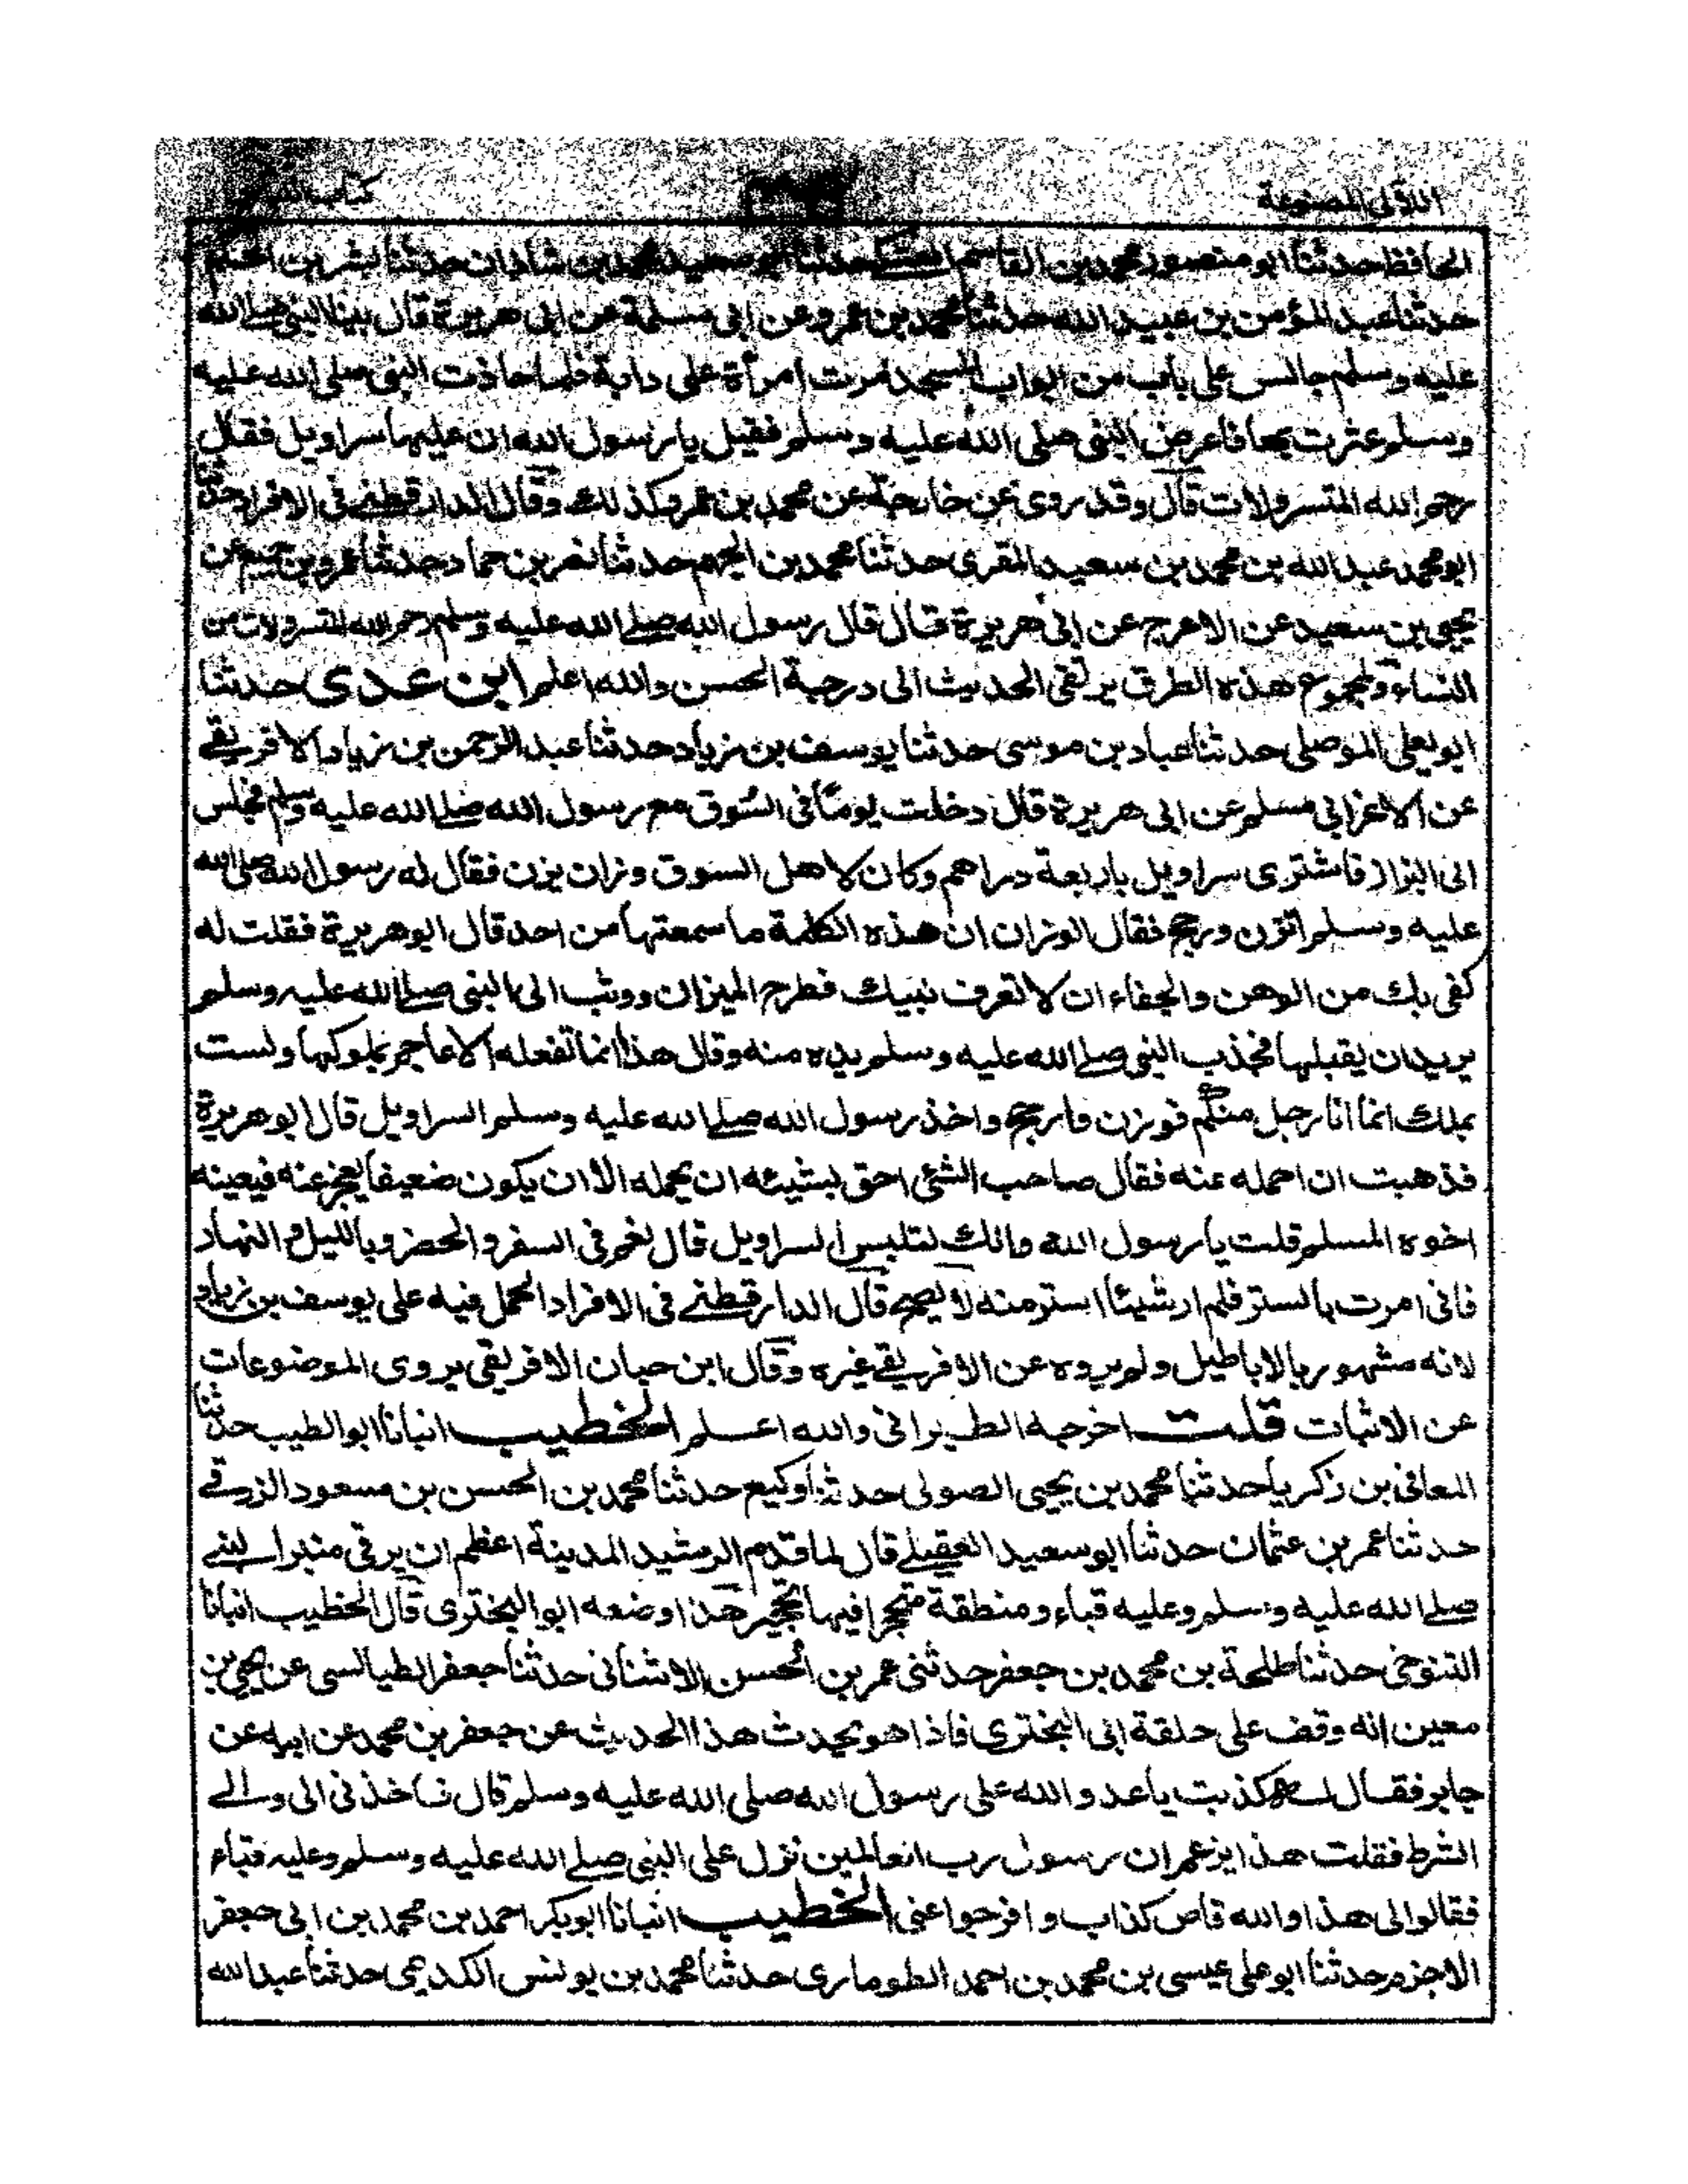 اللآلی المصنوعة
كتاب
الحافظ حدثنا ابو منصور محمد بن القاسم العتكي حدثنا ابو سعيد محمد بن شاذان حدثنا بشر بن الحكم
حدثنا عبد المؤمن بن عبيد الله حدثنا محمد بن عمرو عن ابى سلمة عن ابى هريرة قال بينا النبى صلے الله
عليه وسلم جالس على باب من ابواب المسجد مرت امرأة على دابة فلما حاذت النبى صلى الله عليه
وسلم عثرت بها فاعرض النبى صلى الله عليه وسلم فقيل يا رسول الله ان عليها سراويل فقال
رحم الله المتسرولات قال وقد روى عن خارجة عن محمد بن عمرو كذلك وقال الدارقطنے فى الافراد حدثنا
ابو محمد عبد الله بن محمد بن سعيد المقرى حدثنا محمد بن الجهم حدثنا نصر بن حماد حدثنا عمرو بن جميع عن
يحيى بن سعيد عن الاعرج عن ابى هريرة قال قال رسول الله صلے الله عليه وسلم رحم الله المتسرولات من
النساء وبمجموع هذه الطرق يرتقى الحديث الى درجة الحسن والله اعلم ابن عدى حدثنا
ابو يعلى الموصلى حدثنا عباد بن موسى حدثنا يوسف بن زياد حدثنا عبد الرحمن بن زياد الافريقے
عن الاغر ابي مسلم عن ابى هريرة قال دخلت يوما فى السوق مع رسول الله صلے الله عليه وسلم فجلس
الى البزاز فاشترى سراويل باربعة دراهم وكان لاهل السوق وزان يزن فقال له رسول الله صلى الله
عليه وسلم اتزن ورجح فقال الوزان ان هذه الكلمة ما سمعتها من احد قال ابو هريرة فقلت له
كفى بك من الوهن والجفاء ان لا تعرف نبيك فطرح الميزان ووثب الى يد النبى صلے الله عليه وسلم
يريد ان يقبلها فجذب النبى صلے الله عليه وسلم يده منه وقال هذا انما تفعله الاعاجم بملوكها ولست
بملك انما انا رجل منكم فوزن وارجح واخذ رسول الله صلے الله عليه وسلم السراويل قال ابو هريرة
فذهبت ان احمله عنه فقال صاحب الشئ احق بشيئه ان يحمله الا ان يكون ضعيفا يعجز عنه فيعينه
اخوه المسلم قلت يا رسول الله وانك لتلبس السراويل قال نعم فى السفر والحضر وبالليل والنهار
فانى امرت بالستر فلم ار شيئا استر منه لا يصح قال الدارقطنے فى الافراد الحمل فيه على يوسف بن زياد
لانه مشهور بالاباطيل ولم يروه عن الافريقے غيره وقال ابن حبان الافريقى يروى الموضوعات
عن الاثبات قلت اخرجه الطبرانى والله اعلم الخطيب انبانا ابو الطيب حدثنا
المعافى بن زكريا حدثنا محمد بن يحيى الصولى حدثنا وكيع حدثنا محمد بن الحسن بن مسعود الزرقے
حدثنا عمر بن عثمان حدثنا ابو سعيد العقيلے قال لما قدم الرشيد المدينة اعظم ان يرقى منبر النبے
صلے الله عليه وسلم وعليه قباء ومنطقة
التنوخى حدثنا طلحة بن محمد بن جعفر حدثنى عمر بن الحسن الاشنانى حدثنا جعفر الطيالسى عن يحيى بن
معين انه وقف على حلقة ابى البخترى فاذا هو يحدث هذا الحديث عن جعفر بن محمد عن ابيه عن
جابر فقال له كذبت يا عدو الله على رسول الله صلى الله عليه وسلم قال فاخذنى الى والے
الشرط فقلت هذا يزعم ان رسول رب العالمين نزل على النبى صلے الله عليه وسلم وعليه قباء
فقالوا لى هذا والله قاص كذاب وافرجوا عنى الخطيب انبانا ابو بكر احمد بن محمد بن ابى جعفر
الاخرم حدثنا ابو على عيسى بن محمد بن احمد الطومارى حدثنا محمد بن يونس الكديمى حدثنا عبد الله